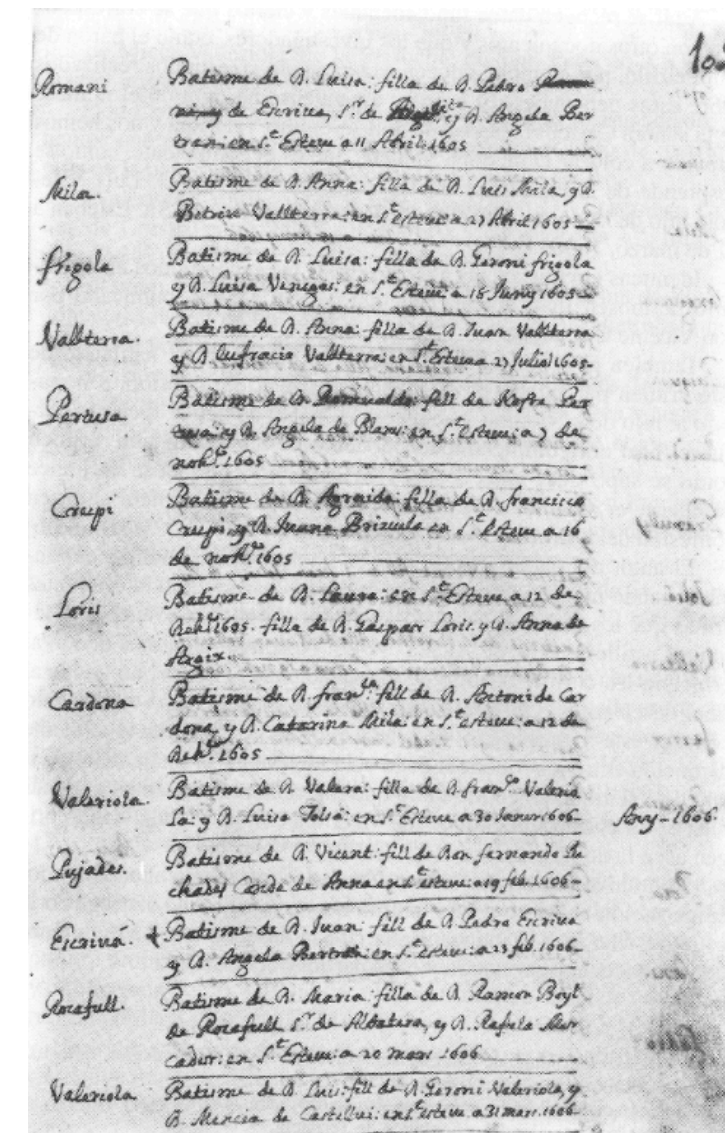 102
Romani Batisme de D. Luisa: filla de D. Pedro
de Escriva, S.r de y D. Angela Ber
tran: en S.t Esteve a 11 Abril: 1605
Mila. Batisme de D. Anna: filla de D. Luis Mila, y D.
Betriu Vallterra: en S.t Esteve a 27 Abril 1605
frigola Batisme de D. Luisa: filla de D. Geroni frigola
y D. Luisa Venegas: en S.t Esteve a 15 Juny 1605
Vallterra. Batisme de D. Anna: filla de D. Juan Vallterra
y D. Eufracia Vallterra: en S.t Esteve a 27 Juliol 1605
Pertusa Batisme de D. Romualdo: fill de Kofre Per
tusa: y D. Angela de Blanes: en S.t Esteve: a 7 de
nohb.e 1605
Crespi Batisme de D. filla de D. francisco
Crespi, y D. Juana Brizuela en S.t Esteve a 16
de nohb.e 1605
Loris Batisme de D. Laura: en S.t Esteve a 12 de
Deh.e 1605. filla de D. Gaspar Loris. y D. Anna de
Cardona Batisme de D. fran.co: fill de D. Antoni de Car
dona, y D. Catarina Mila: en S.t Esteve: a 12 de
Deh.e 1605
Valeriola. Batisme de D. Valera: filla de D. fran.co Valerio
la: y D. Luisa Tolsá: en S.t Esteve a 30 Janer 1606 Any - 1606.
Pujades. Batisme de D. Vicent: fill de Don fernando Pu
chades Conde de Anna en S.t esteve: a 19 feb. 1606
Escrivá. + Batisme de D. Juan: fill de D. Pedro Escriva
y D. Angela Bertran: en S.t Esteve: a 23 feb. 1606
Rocafull. Batisme de D. Maria: filla de D. Ramon Boyl
de Rocafull S.r de Albatera, y D. Rafela Mer
cader: en S.t Esteve: a 20 mars 1606
Valeriola Batisme de D. Luis: fill de D. Geroni Valeriola, y
D. Mencia de Castellvi: en S.t esteve a 31 mars. 1606